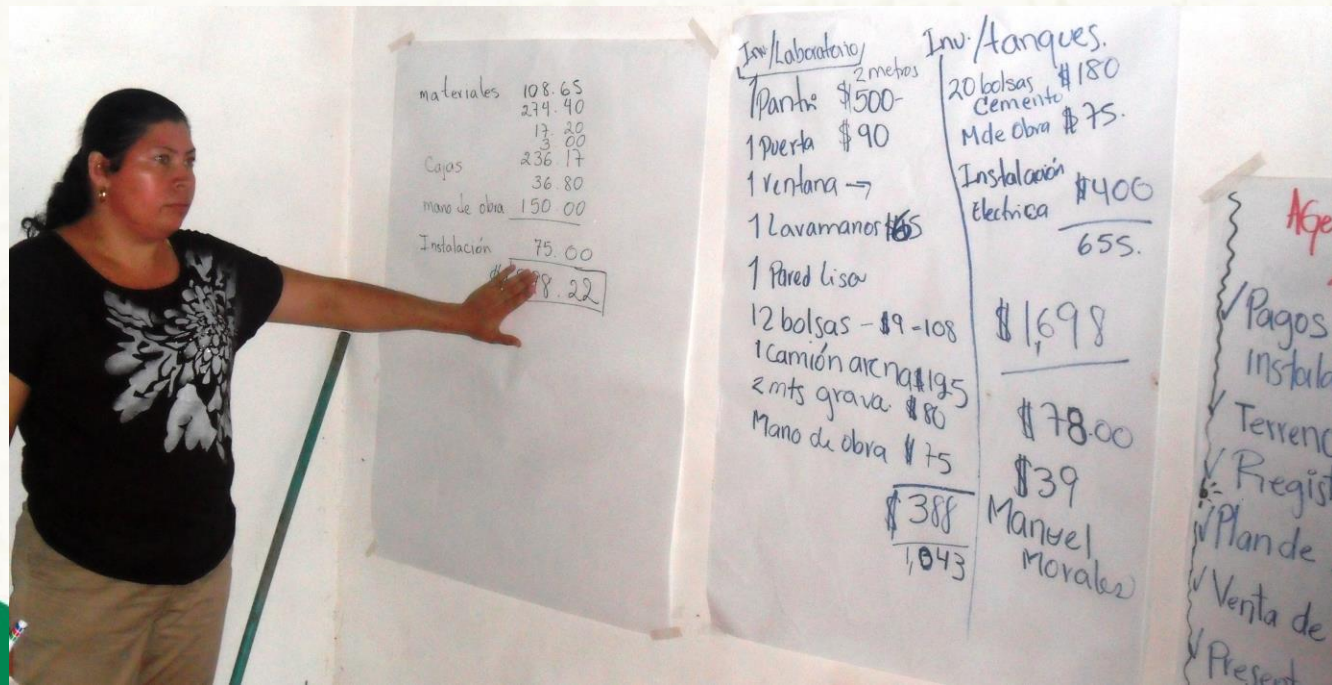 materiales 108.65
274.40
17.20
3 00
Cajas 236.17
36.80
mano de obra 150.00
Instalación 75.00
98.22
Inv/Laboratorio/
2 metros
1 Pantri $500-
1 Puerta $90
1 ventana →
1 Lavamanos
1 Pared Lisa
12 bolsas - $9 - 108
1 camión arena $125
2 mts grava. $80
Mano de obra $75
$388
1,043
Inv./tanques.
20 bolsas $180
Cemento
M de Obra $75.
Instalación $400
Electrica
655.
$1,698
$78.00
$39
Manuel
Morales
Age
Pagos
Instala
Terreno
Regist
Plan de
Venta de
Present